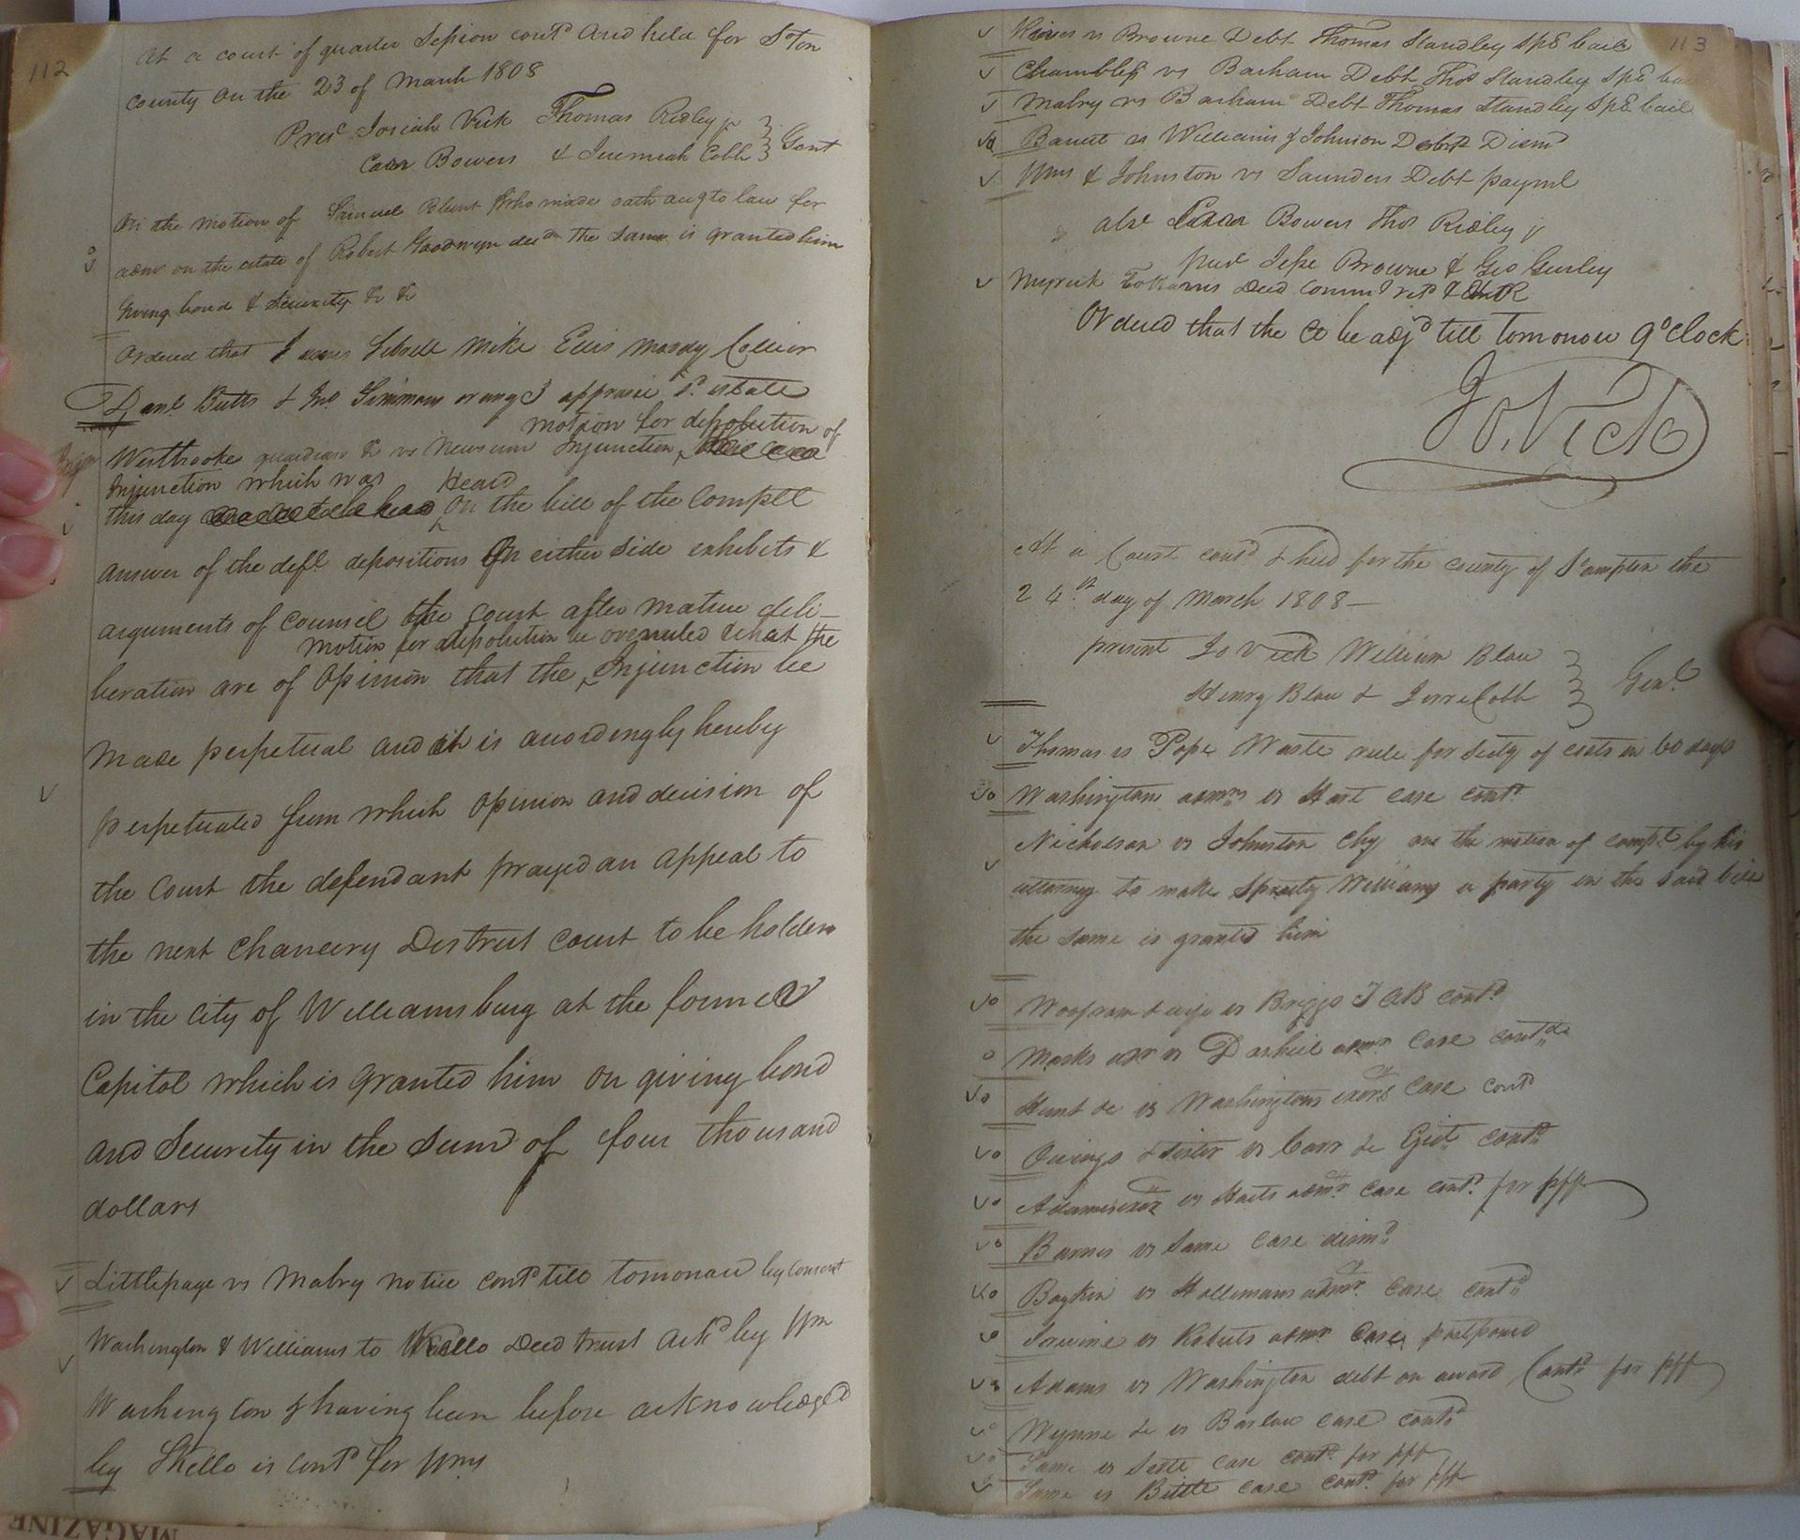 112
At a court of quarter Session cont'd and held for S'ton
county on the 23 of March 1808
Pres't Josiah Vick Thomas Ridley jr
Carr Bowers & Jeremiah Cobb Gent
On the motion of Samuel Blunt who made oath acc'g to law for
adm'r on the estate of Robert Goodwyn dec'd the same is granted him
Giving bond & security &c &c
Ordered that James Sebrell Mike Ellis Mordy Collier
Dan'l Butts & Jno Simmons or any 3 appraise s'd estate
motion for dissolution of
Westbrooke guardian &c vs Newsum Injunction
Injunction which was Heard
this day on the bill of the Compl't
answer of the def't depositions on either side exhibits &
arguments of counsel the court after mature deli-
motion for dissolution be overruled & that the
beration are of opinion that the Injunction be
made perpetual and it is accordingly hereby
perpetuated from which opinion and decision of
the court the defendant prayed an appeal to
the next Chancery District court to be holden
in the city of Williamsburg at the former
Capitol which is granted him on giving bond
and security in the sum of four thousand
dollars
Littlepage vs Mabry notice cont'd till tomorrow by consent
Washington & Williams to Kello Deed trust ack'd by Wm
Washington & having been before acknowledged
by Kello is cont'd for Wms
113
vs Browne Debt Thomas Standley spe bail
Chambliss vs Barham Debt Thos Standley spe bail
Mabry vs Barham Debt Thomas Standley spe bail
Barrett vs Williams & Johnson Debt Dism'd
Wms & Johnston vs Saunders Debt paym't
abs't Carr Bowers Thos Ridley jr
pres't Jesse Browne & Geo Gurley
Myrick to Harris Deed comm'n ret'd & O R
Ordered that the Co be adj'd till tomorrow 9 oClock
Jo. Vick
At a Court cont'd & held for the county of S'ampton the
24th day of March 1808
present Jo Vick William Blow
Henry Blow & Jerre Cobb Gen't
Thomas vs Pope Waste rule for sec'ty of costs in 60 days
Washingtons adm'rs vs Hart case cont'd
Nicholson vs Johnston Ch'y on the motion of compl't by his
attorney to make Spratly Williams a party in the said bill
the same is granted him
vs Briggs T A B cont'd
Marks ex'r vs Dashiel adm'r Case cont'd
Hunt &c vs Washingtons ex'ors case cont'd
Owings & sister vs Carr &c cont'd
Adams's ex'or vs Harts adm'r case cont'd for plff
Barnes vs Same case dism'd
Boykin vs Hollemans adm'r case cont'd
vs Roberts adm'r Case postponed
Adams vs Washington debt on award Cont'd for plff
Wynne &c vs Barlow case cont'd
Same vs case cont'd for plff
Same vs Bittle case cont'd for plff